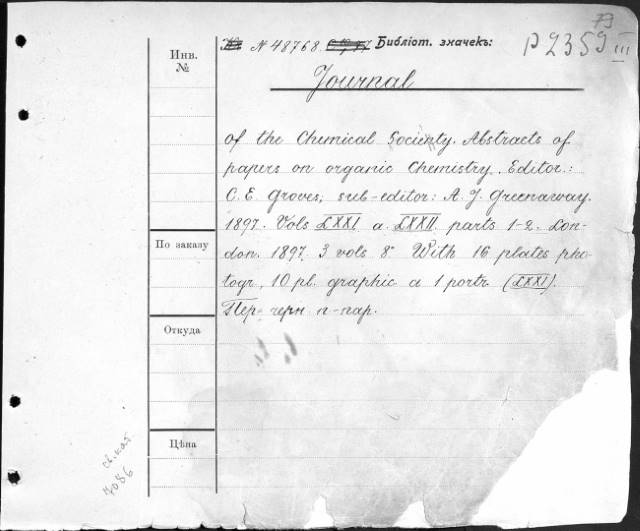 73
№ 48768. Библіот. значекъ: P 2359 III
Инв. №
Journal
of the Chemical Society. Abstracts of
papers on organic Chemistry. Editor:
C. E. Groves; sub-editor: A. J. Greenaway.
1897. Vols LXXI a. LXXII parts 1-2. Lon-
don. 1897. 3 vols 8° With 16 plates pho-
togr., 10 pl. graphic a 1 portr (LXXI).
Пер. черн. п-пар.
По заказу
Откуда
Цѣна
7086